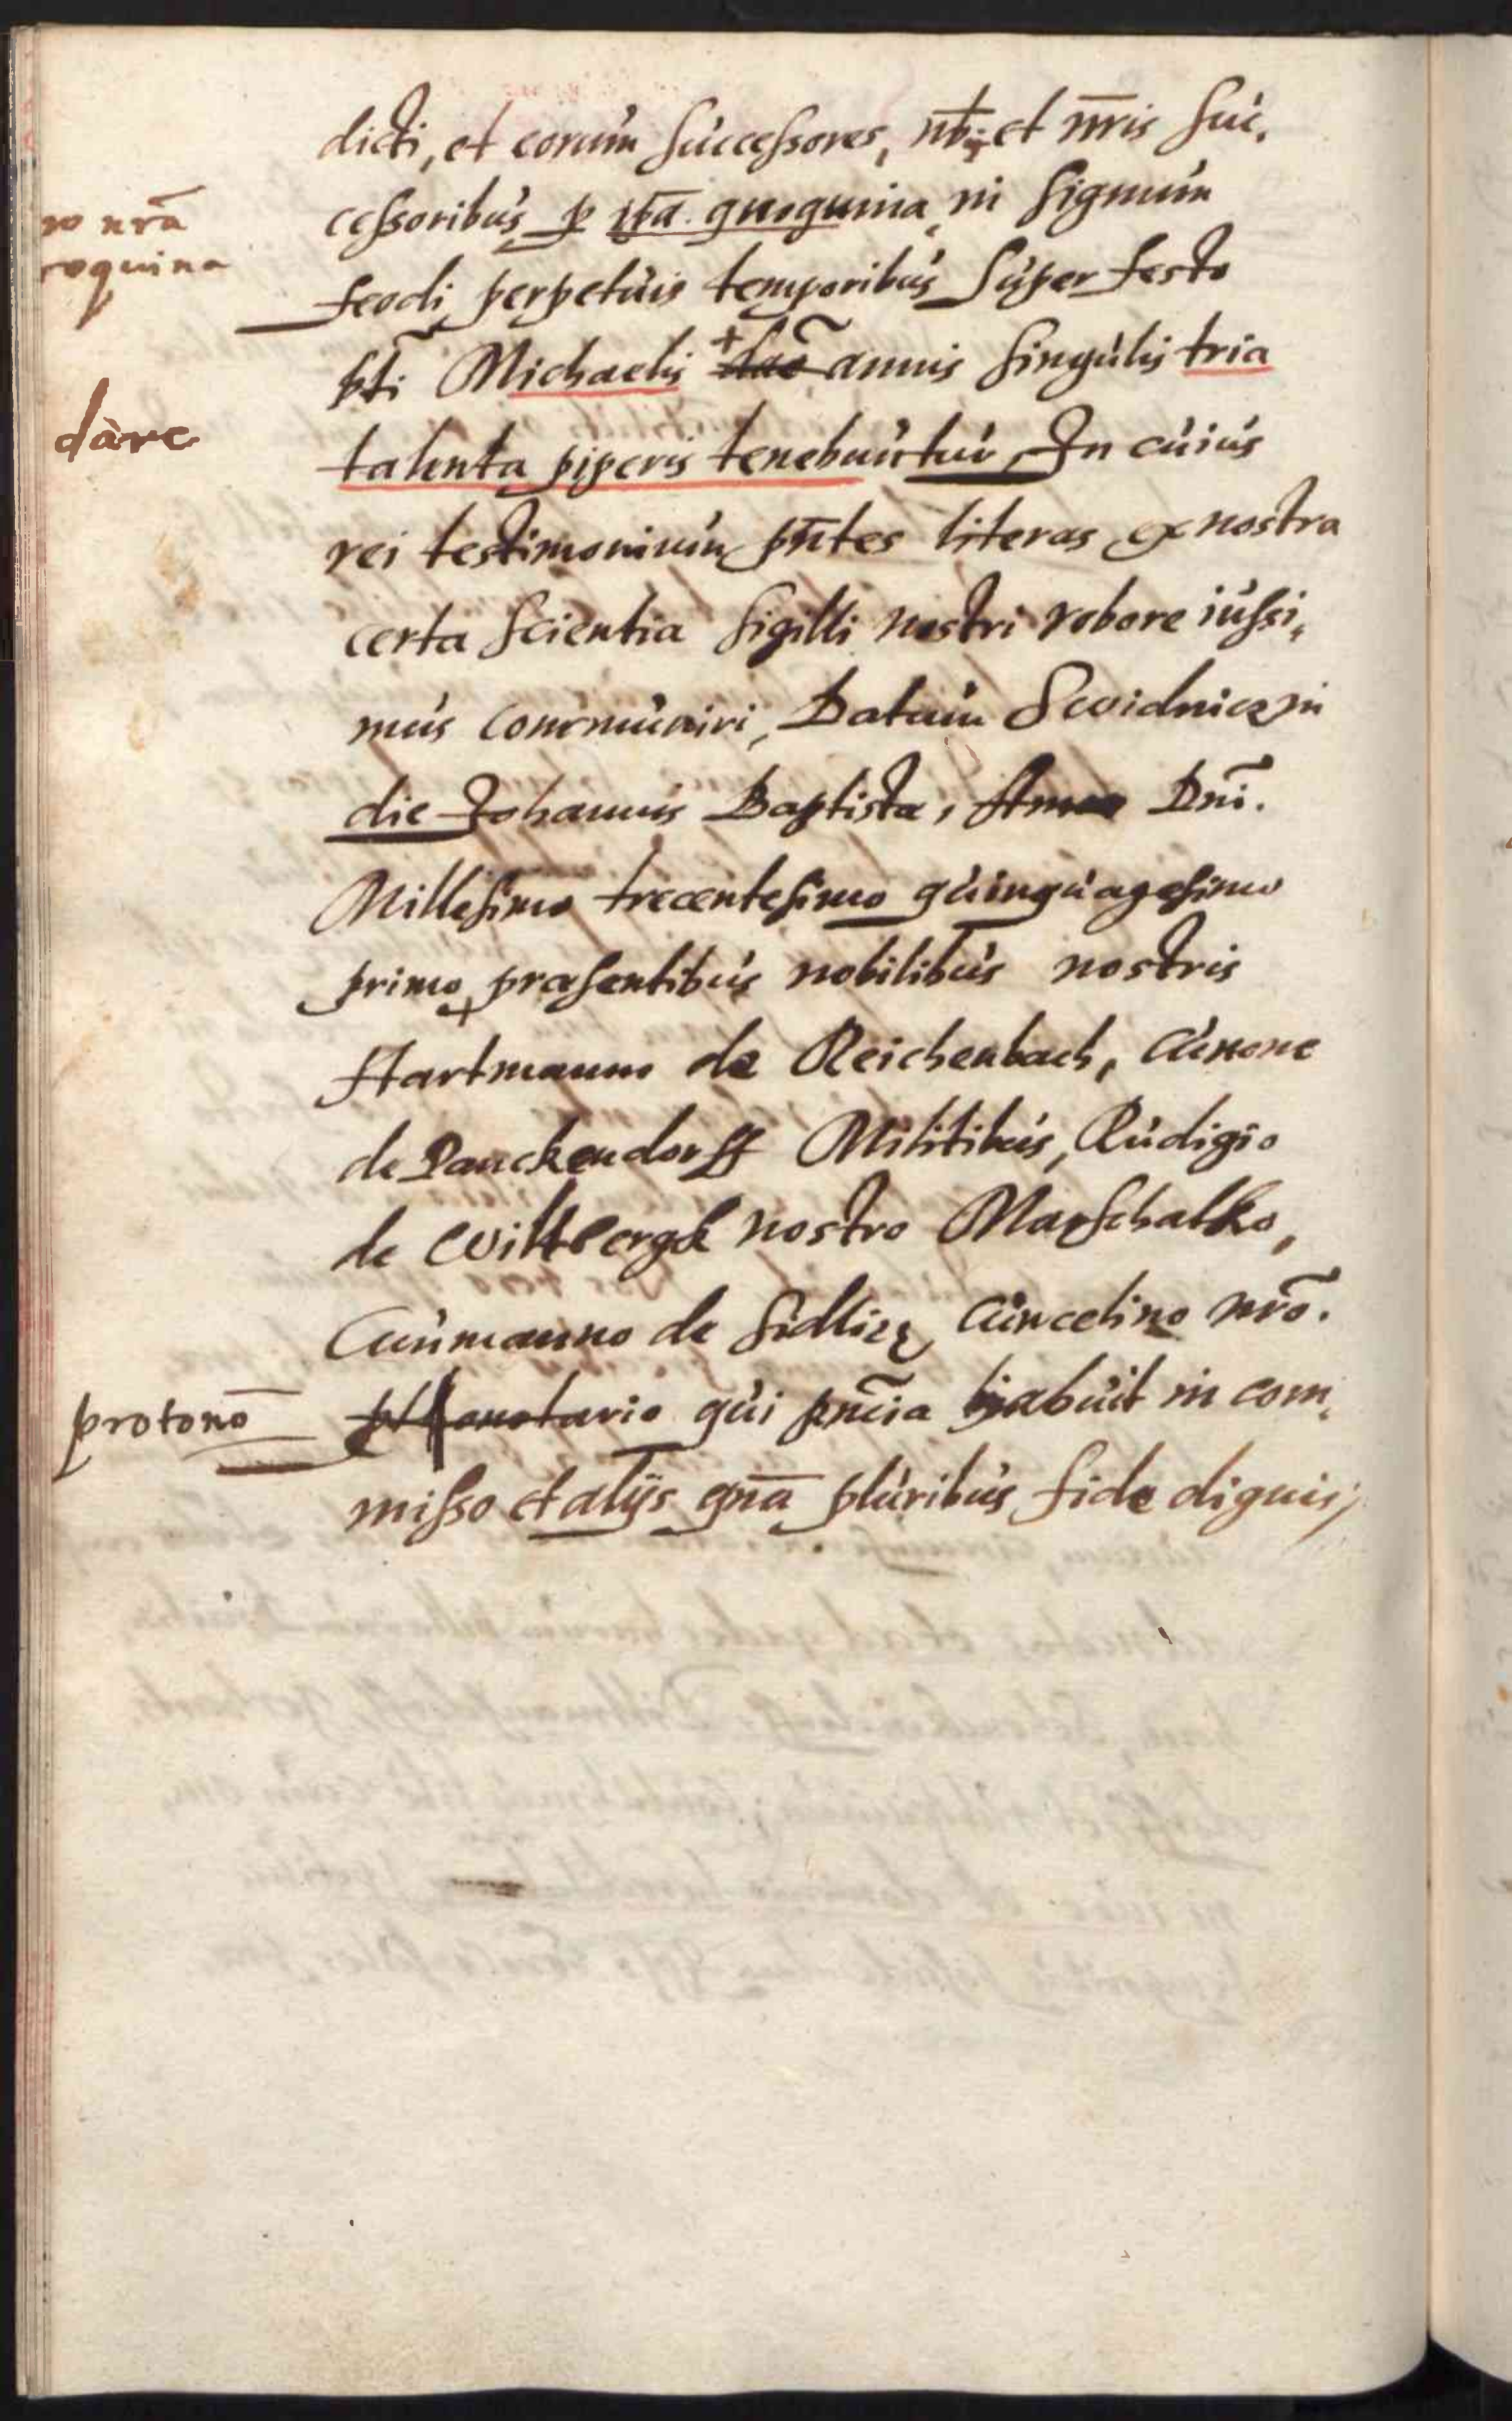 dicti, et eorum successores, nb et nr̄is suc,
cessoribus p ur̄a quoquina in signum
ro nrā
roquina
feodi perpetuis temporibus super festo
sti Michaelis + annis singulis tria
dare
talenta piperis tenebuntur In cuius
rei testimonium pn̄tes literas ex nostra
certa scientia sigilli nostri robore iussi,
mus communiri, Datum Swidnicz in
die Johannis Baptista, Anno Dnī.
Millesimo trecentesimo quinquagesimo
primo praesentibus nobilibus nostris
Hartmanno de Reichenbach, Cunone
de Panckendorff Militibus, Rudigio
de Wiltbergk nostro Marschalko,
Cunmanno de Sidlicz Cuncelino nrō.
protonō
notario qui pn̄cia habuit in com,
misso et alijs qn̄a pluribus fide dignis,